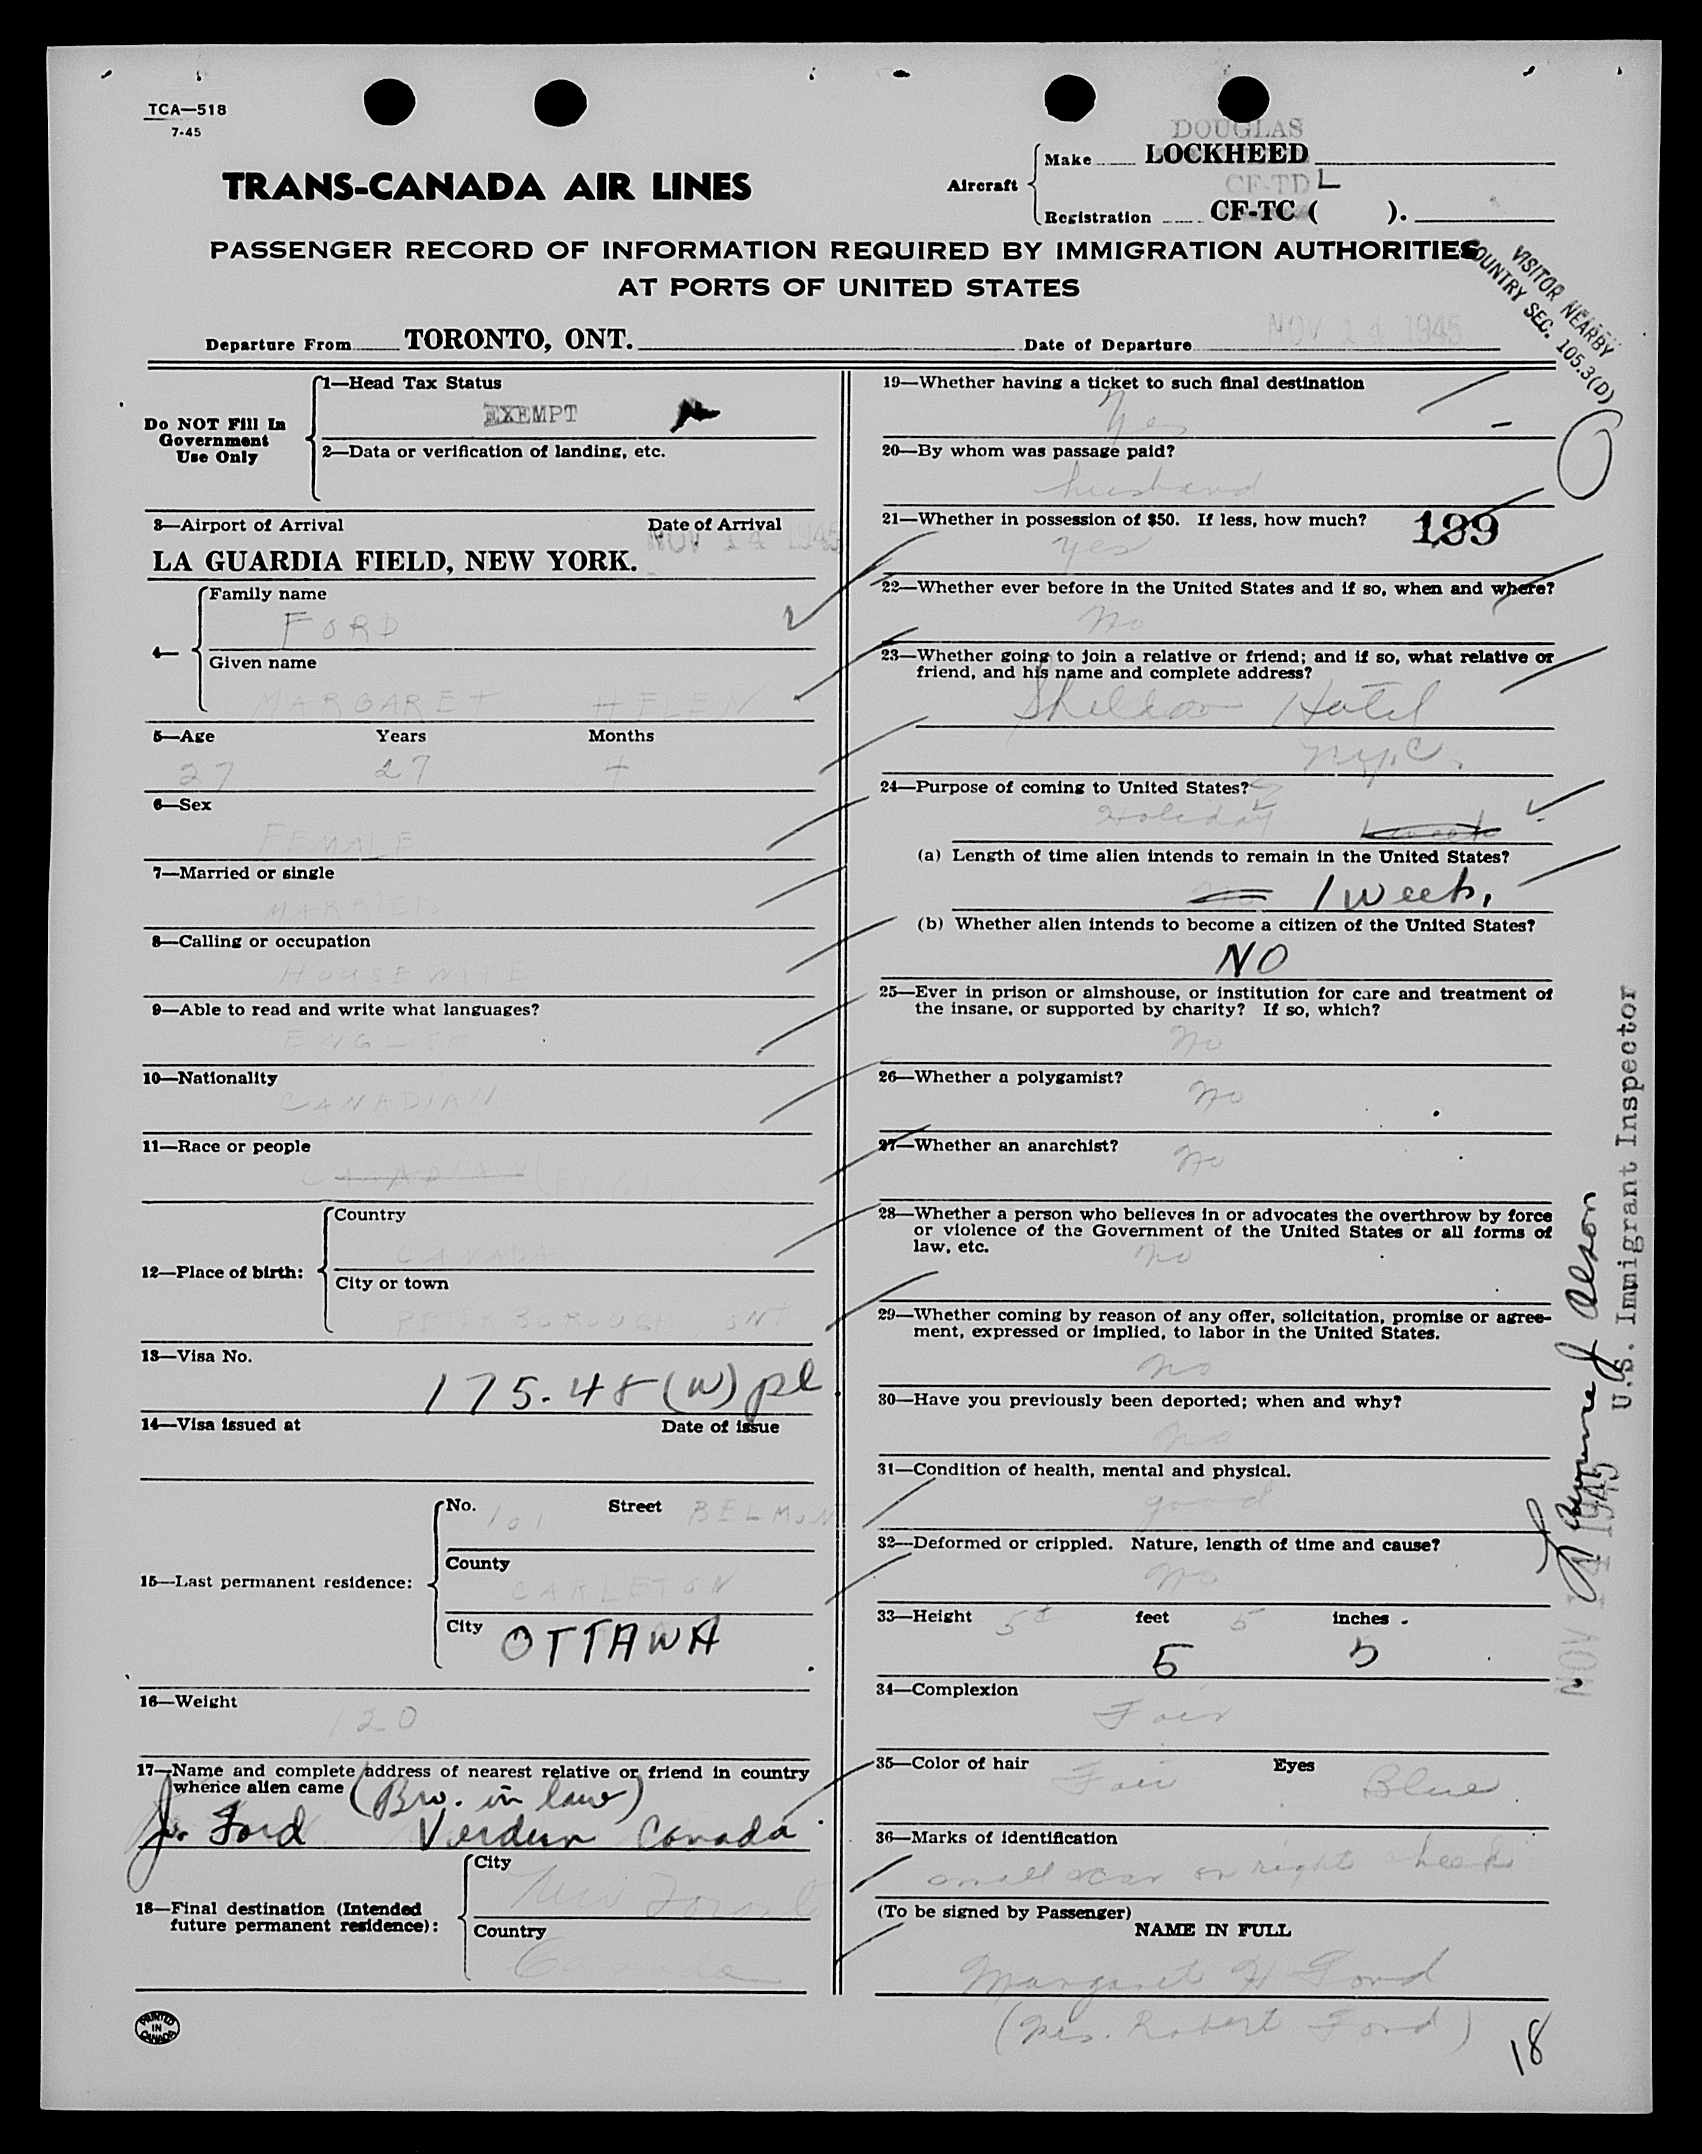 TCA—518
7-45
TRANS-CANADA AIR LINES
DOUGLAS
Aircraft
Make LOCKHEED
CF-TD L
Registration CF-TC ( ).
PASSENGER RECORD OF INFORMATION REQUIRED BY IMMIGRATION AUTHORITIES
AT PORTS OF UNITED STATES
VISITOR NEARBY
COUNTRY SEC. 105.3(D)
Departure From TORONTO, ONT. Date of Departure NOV 14 1945
Do NOT Fill In
Government
Use Only
1—Head Tax Status
EXEMPT
2—Data or verification of landing, etc.
3—Airport of Arrival Date of Arrival
NOV 14 1945
LA GUARDIA FIELD, NEW YORK.
4—
Family name
FORD
Given name
MARGARET HELEN
5—Age Years Months
27 27 +
6—Sex
FEMALE
7—Married or single
MARRIED
8—Calling or occupation
HOUSEWIFE
9—Able to read and write what languages?
ENGLISH
10—Nationality
CANADIAN
11—Race or people
CANADIAN
12—Place of birth:
Country
CANADA
City or town
PETERBOROUGH ONT
13—Visa No.
175.48 (W) pl
14—Visa issued at Date of issue
15—Last permanent residence:
No. 101 Street BELMONT
County
CARLETON
City OTTAWA
16—Weight
120
17—Name and complete address of nearest relative or friend in country
whence alien came (Bro. in law)
J. Ford Verdun Canada
18—Final destination (Intended
future permanent residence):
City
New
Country
Canada
PRINTED
IN
CANADA
19—Whether having a ticket to such final destination
Yes
20—By whom was passage paid?
husband
21—Whether in possession of $50. If less, how much?
yes
139
22—Whether ever before in the United States and if so, when and where?
No
23—Whether going to join a relative or friend; and if so, what relative or
friend, and his name and complete address?
Sheldon Hotel
NYC.
24—Purpose of coming to United States?
Holiday 1 week
(a) Length of time alien intends to remain in the United States?
No 1 week.
(b) Whether alien intends to become a citizen of the United States?
NO
25—Ever in prison or almshouse, or institution for care and treatment of
the insane, or supported by charity? If so, which?
No
26—Whether a polygamist?
No
27—Whether an anarchist?
No
28—Whether a person who believes in or advocates the overthrow by force
or violence of the Government of the United States or all forms of
law, etc.
No
29—Whether coming by reason of any offer, solicitation, promise or agree-
ment, expressed or implied, to labor in the United States.
No
30—Have you previously been deported; when and why?
No
31—Condition of health, mental and physical.
good
32—Deformed or crippled. Nature, length of time and cause?
No
33—Height 5 feet 5 inches
5 5
34—Complexion
Fair
35—Color of hair Fair Eyes Blue
36—Marks of identification
small scar on right cheek
(To be signed by Passenger)
NAME IN FULL
Margaret H Ford
(Mrs. Robert Ford)
18
U.S. Immigrant Inspector
NOV 14 1945